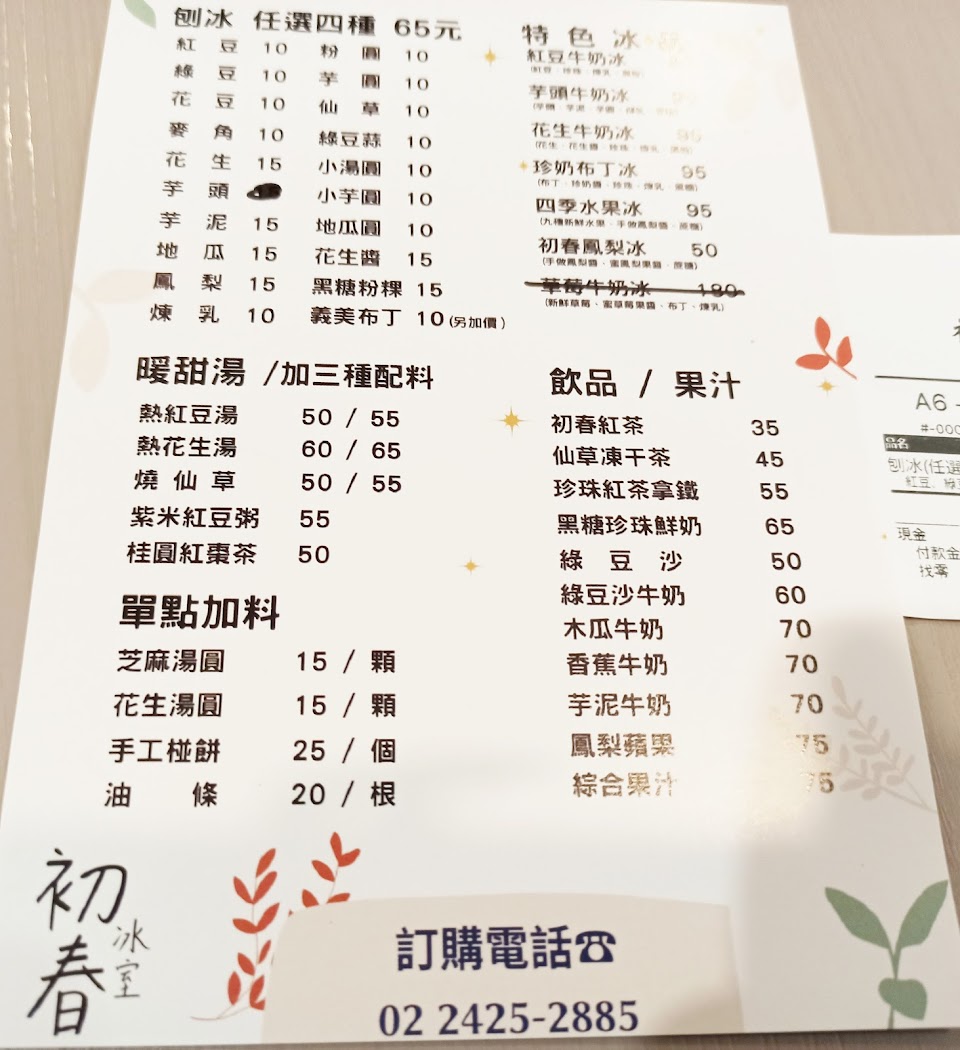 刨冰 任選四種 65元
紅豆 10 粉圓 10
綠豆 10 芋圓 10
花豆 10 仙草 10
麥角 10 綠豆蒜 10
花生 15 小湯圓 10
芋頭 小芋圓 10
芋泥 15 地瓜圓 10
地瓜 15 花生醬 15
鳳梨 15 黑糖粉粿 15
煉乳 10 義美布丁 10 (另加價)
特色冰
紅豆牛奶冰
芋頭牛奶冰
花生牛奶冰 95
珍奶布丁冰 95
(布丁、珍奶醬、珍珠、煉乳、蔗糖)
四季水果冰 95
(九種新鮮水果、手做鳳梨醬、蔗糖)
初春鳳梨冰 50
(手做鳳梨醬、蜜鳳梨果醬、蔗糖)
草莓牛奶冰 180
(新鮮草莓、蜜草莓果醬、布丁、煉乳)
暖甜湯 /加三種配料
熱紅豆湯 50 / 55
熱花生湯 60 / 65
燒仙草 50 / 55
紫米紅豆粥 55
桂圓紅棗茶 50
單點加料
芝麻湯圓 15 / 顆
花生湯圓 15 / 顆
手工椪餅 25 / 個
油條 20 / 根
飲品 / 果汁
初春紅茶 35
仙草凍干茶 45
珍珠紅茶拿鐵 55
黑糖珍珠鮮奶 65
綠豆沙 50
綠豆沙牛奶 60
木瓜牛奶 70
香蕉牛奶 70
芋泥牛奶 70
鳳梨蘋果 75
綜合果汁 75
初春
冰室
訂購電話☎
02 2425-2885
A6 -
#-000
品名
刨冰(任選
紅豆、綠豆
現金
付款金
找零